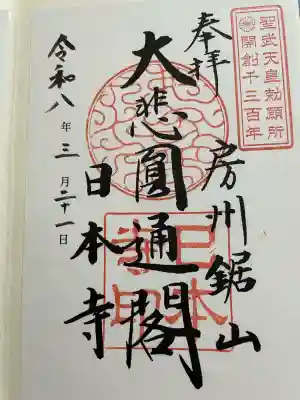 聖武天皇勅願所
開創千三百年
奉拝
房州鋸山
大悲圓通閣
日本寺
令和八年三月二十一日